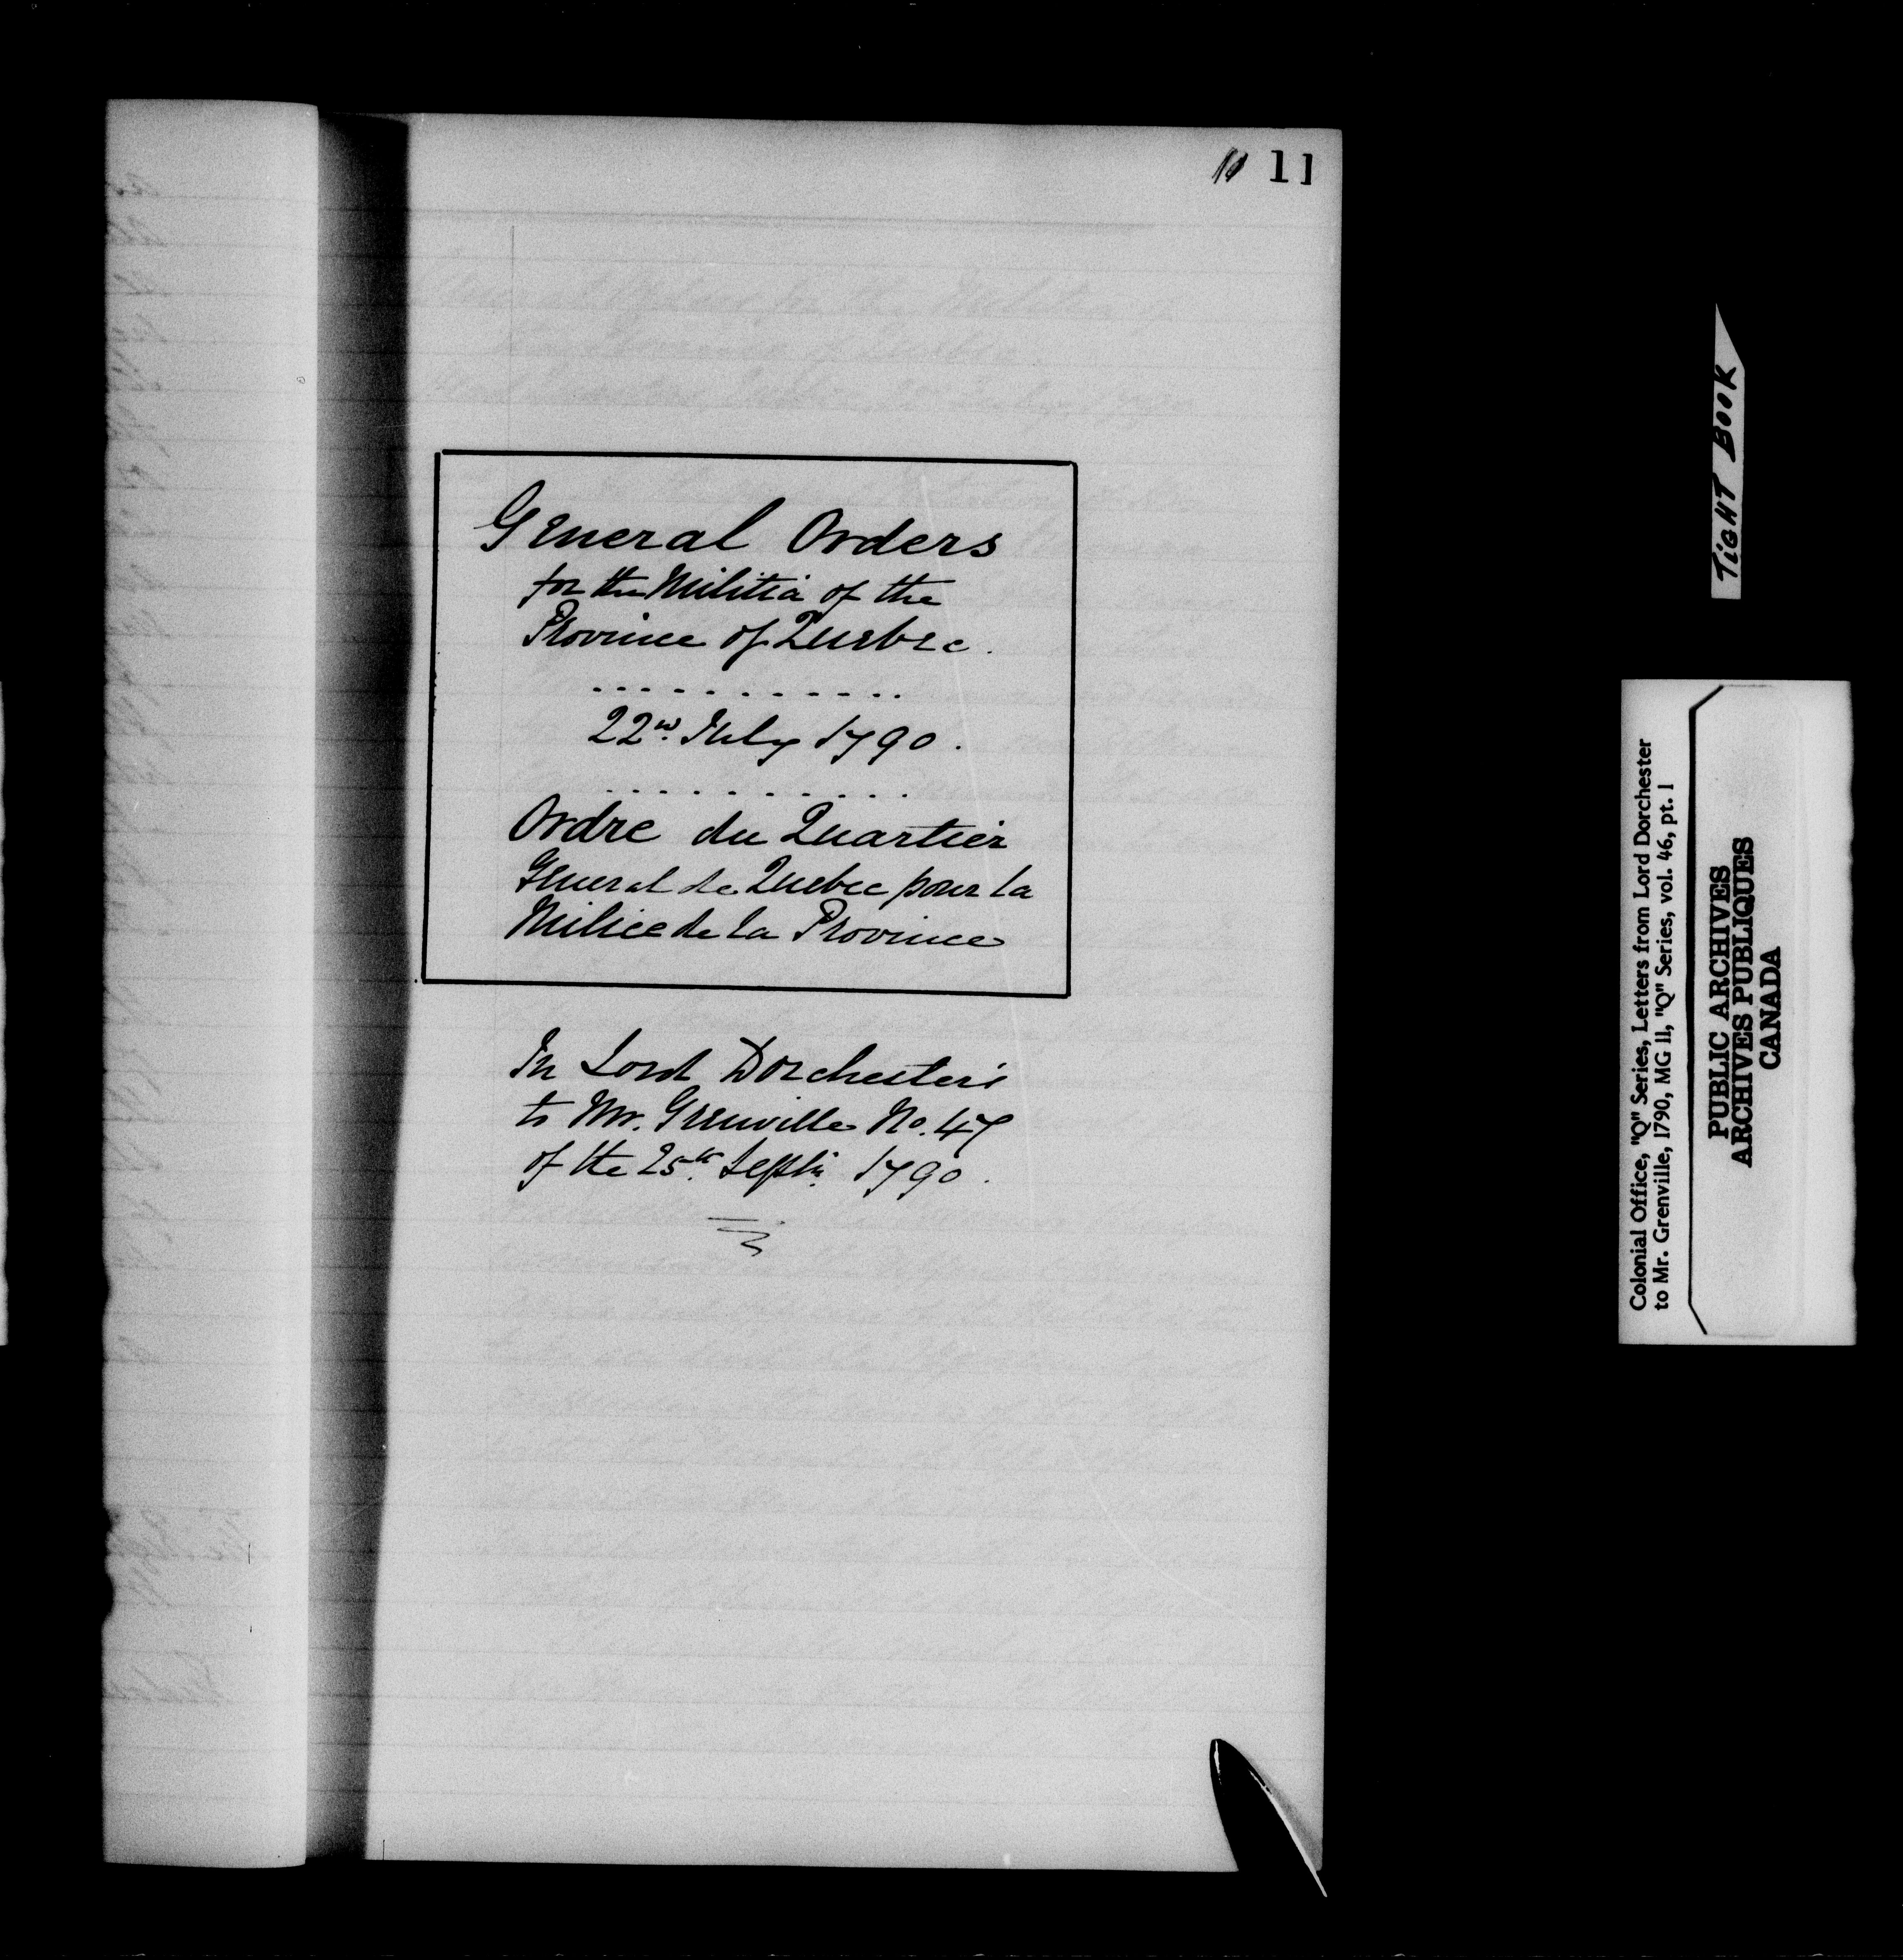 11
General Orders
for the Militia of the
Province of Quebec.
. . . . . . . . . . .
22nd July 1790.
. . . . . . . . . . .
Ordre du Quartier
General de Quebec pour la
Milice de la Province
In Lord Dorchester's
to Mr. Grenville No. 47
of the 25th Septr. 1790.
TIGHT BOOK
Colonial Office, "Q" Series, Letters from Lord Dorchester
to Mr. Grenville, 1790, MG 11, "Q" Series, vol. 46, pt. 1
PUBLIC ARCHIVES
ARCHIVES PUBLIQUES
CANADA